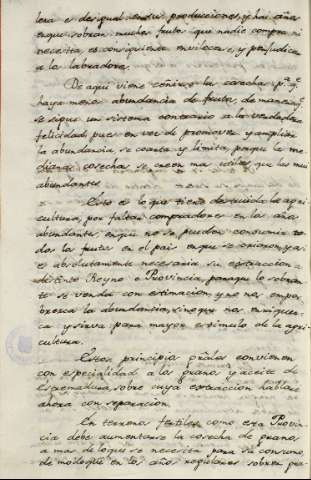 lera e desigual en sus producciones, y hai años
en que sobran muchos frutos que nadie compra ni
necesita, es consiguiente envilecerse, y perjudica
a los labradores.
De aqui viene ceñirse las cosechas p.ª q.e
haya menos abundancia de frutos, de manera q.e
se sigue un sistema contrario a la verdadera
felicidad, pues en vez de promover y ampliar
la abundancia se coarta y limita, porque las me
dianas cosechas se creen mas utiles que las mui
abundantes.
Esto es lo que tiene destruida la agri
cultura, por faltar compradores en los años
abundantes en que no se pueden consumir to
dos los frutos en el pais en que se criaron, y asi
es absolutamente necesaria su extraccion a
distinto Reyno o Provincia, para que lo sobran
te se venda con estimacion, y no nos empo
brezca la abundancia, sino que nos enriquez
ca y sirva para mayor estimulo de la agri
cultura.
Estos principios g.rales convienen
con especialidad a los granos y aceite de
Estremadura, sobre cuya extraccion hablaré
ahora con separacion.
En terrenos fertiles como esa Provin
cia debe aumentarse la cosecha de granos
a mas de lo que se necesita para su consumo
de modo que en los años regulares sobren gra